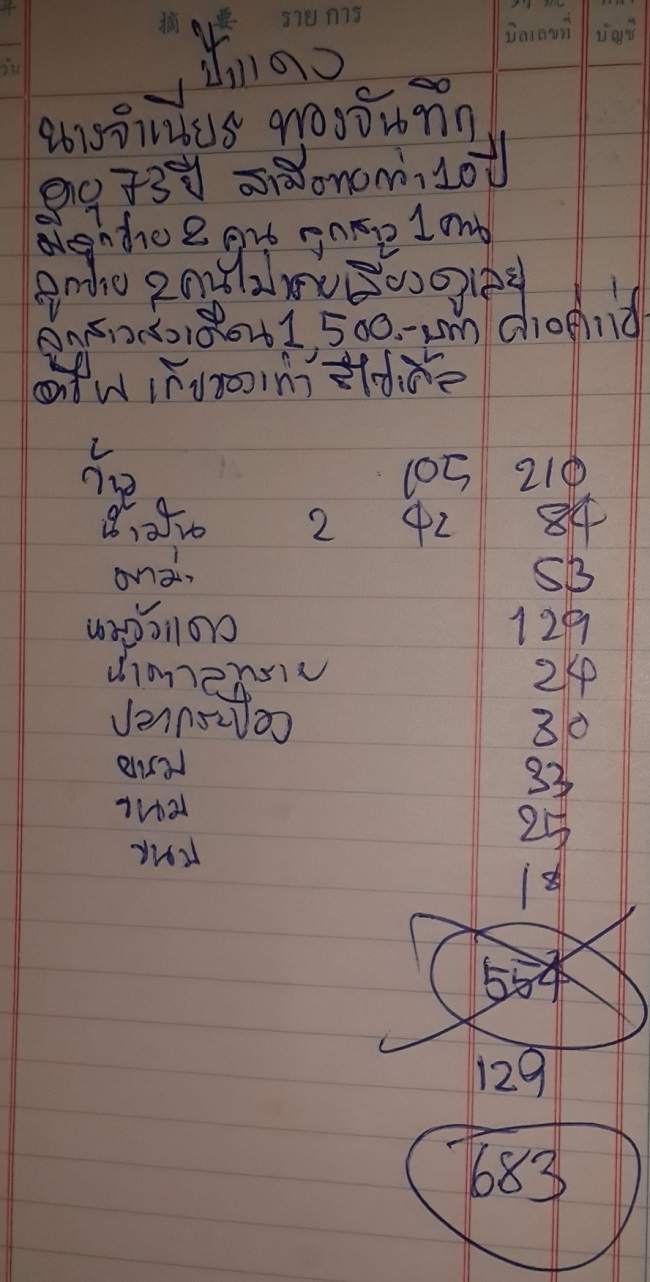 摘 要 รายการ
บิลเลขที่ บัญชี
วัน
ป้าแดง
นางจำเนียร ทองจันทึก
อายุ 73 ปี สามีตายกว่า 10 ปี
มีลูกชาย 2 คน ลูกสาว 1 คน
ลูกชาย 2 คนไม่เคยเลี้ยงดูเลย
ลูกสาวส่งเดือน 1,500.- บาท
อาชีพ เก็บของเก่า
105 210
น้ำมัน 2 42 84
มาม่า 53
นมวัวแดง 129
น้ำตาลทราย 24
ปลากระป๋อง 30
ขนม 33
ขนม 25
ขนม 18
554
129
683